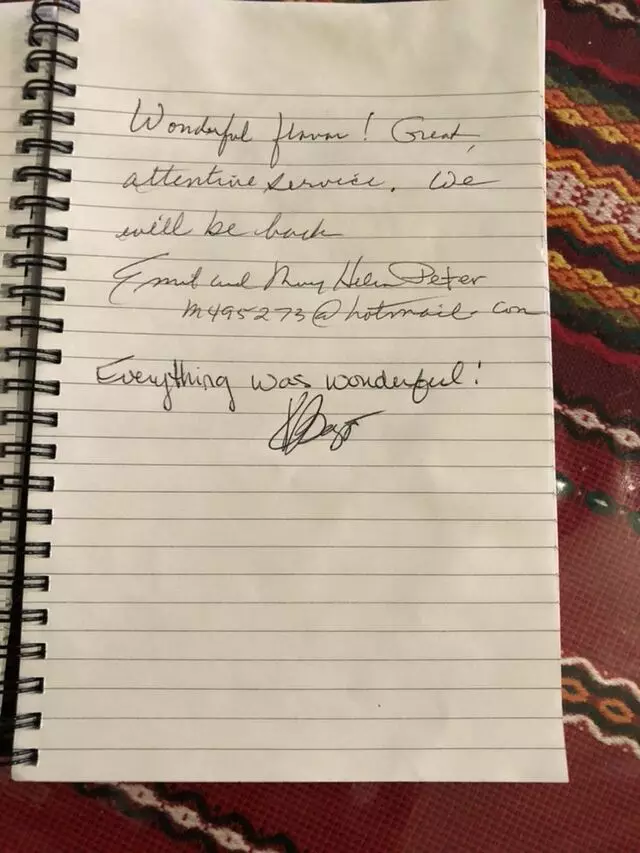 Wonderful flavor! Great,
attentive service. We
will be back
and Mary Helen Peter
m495273@hotmail.com
Everything was wonderful!